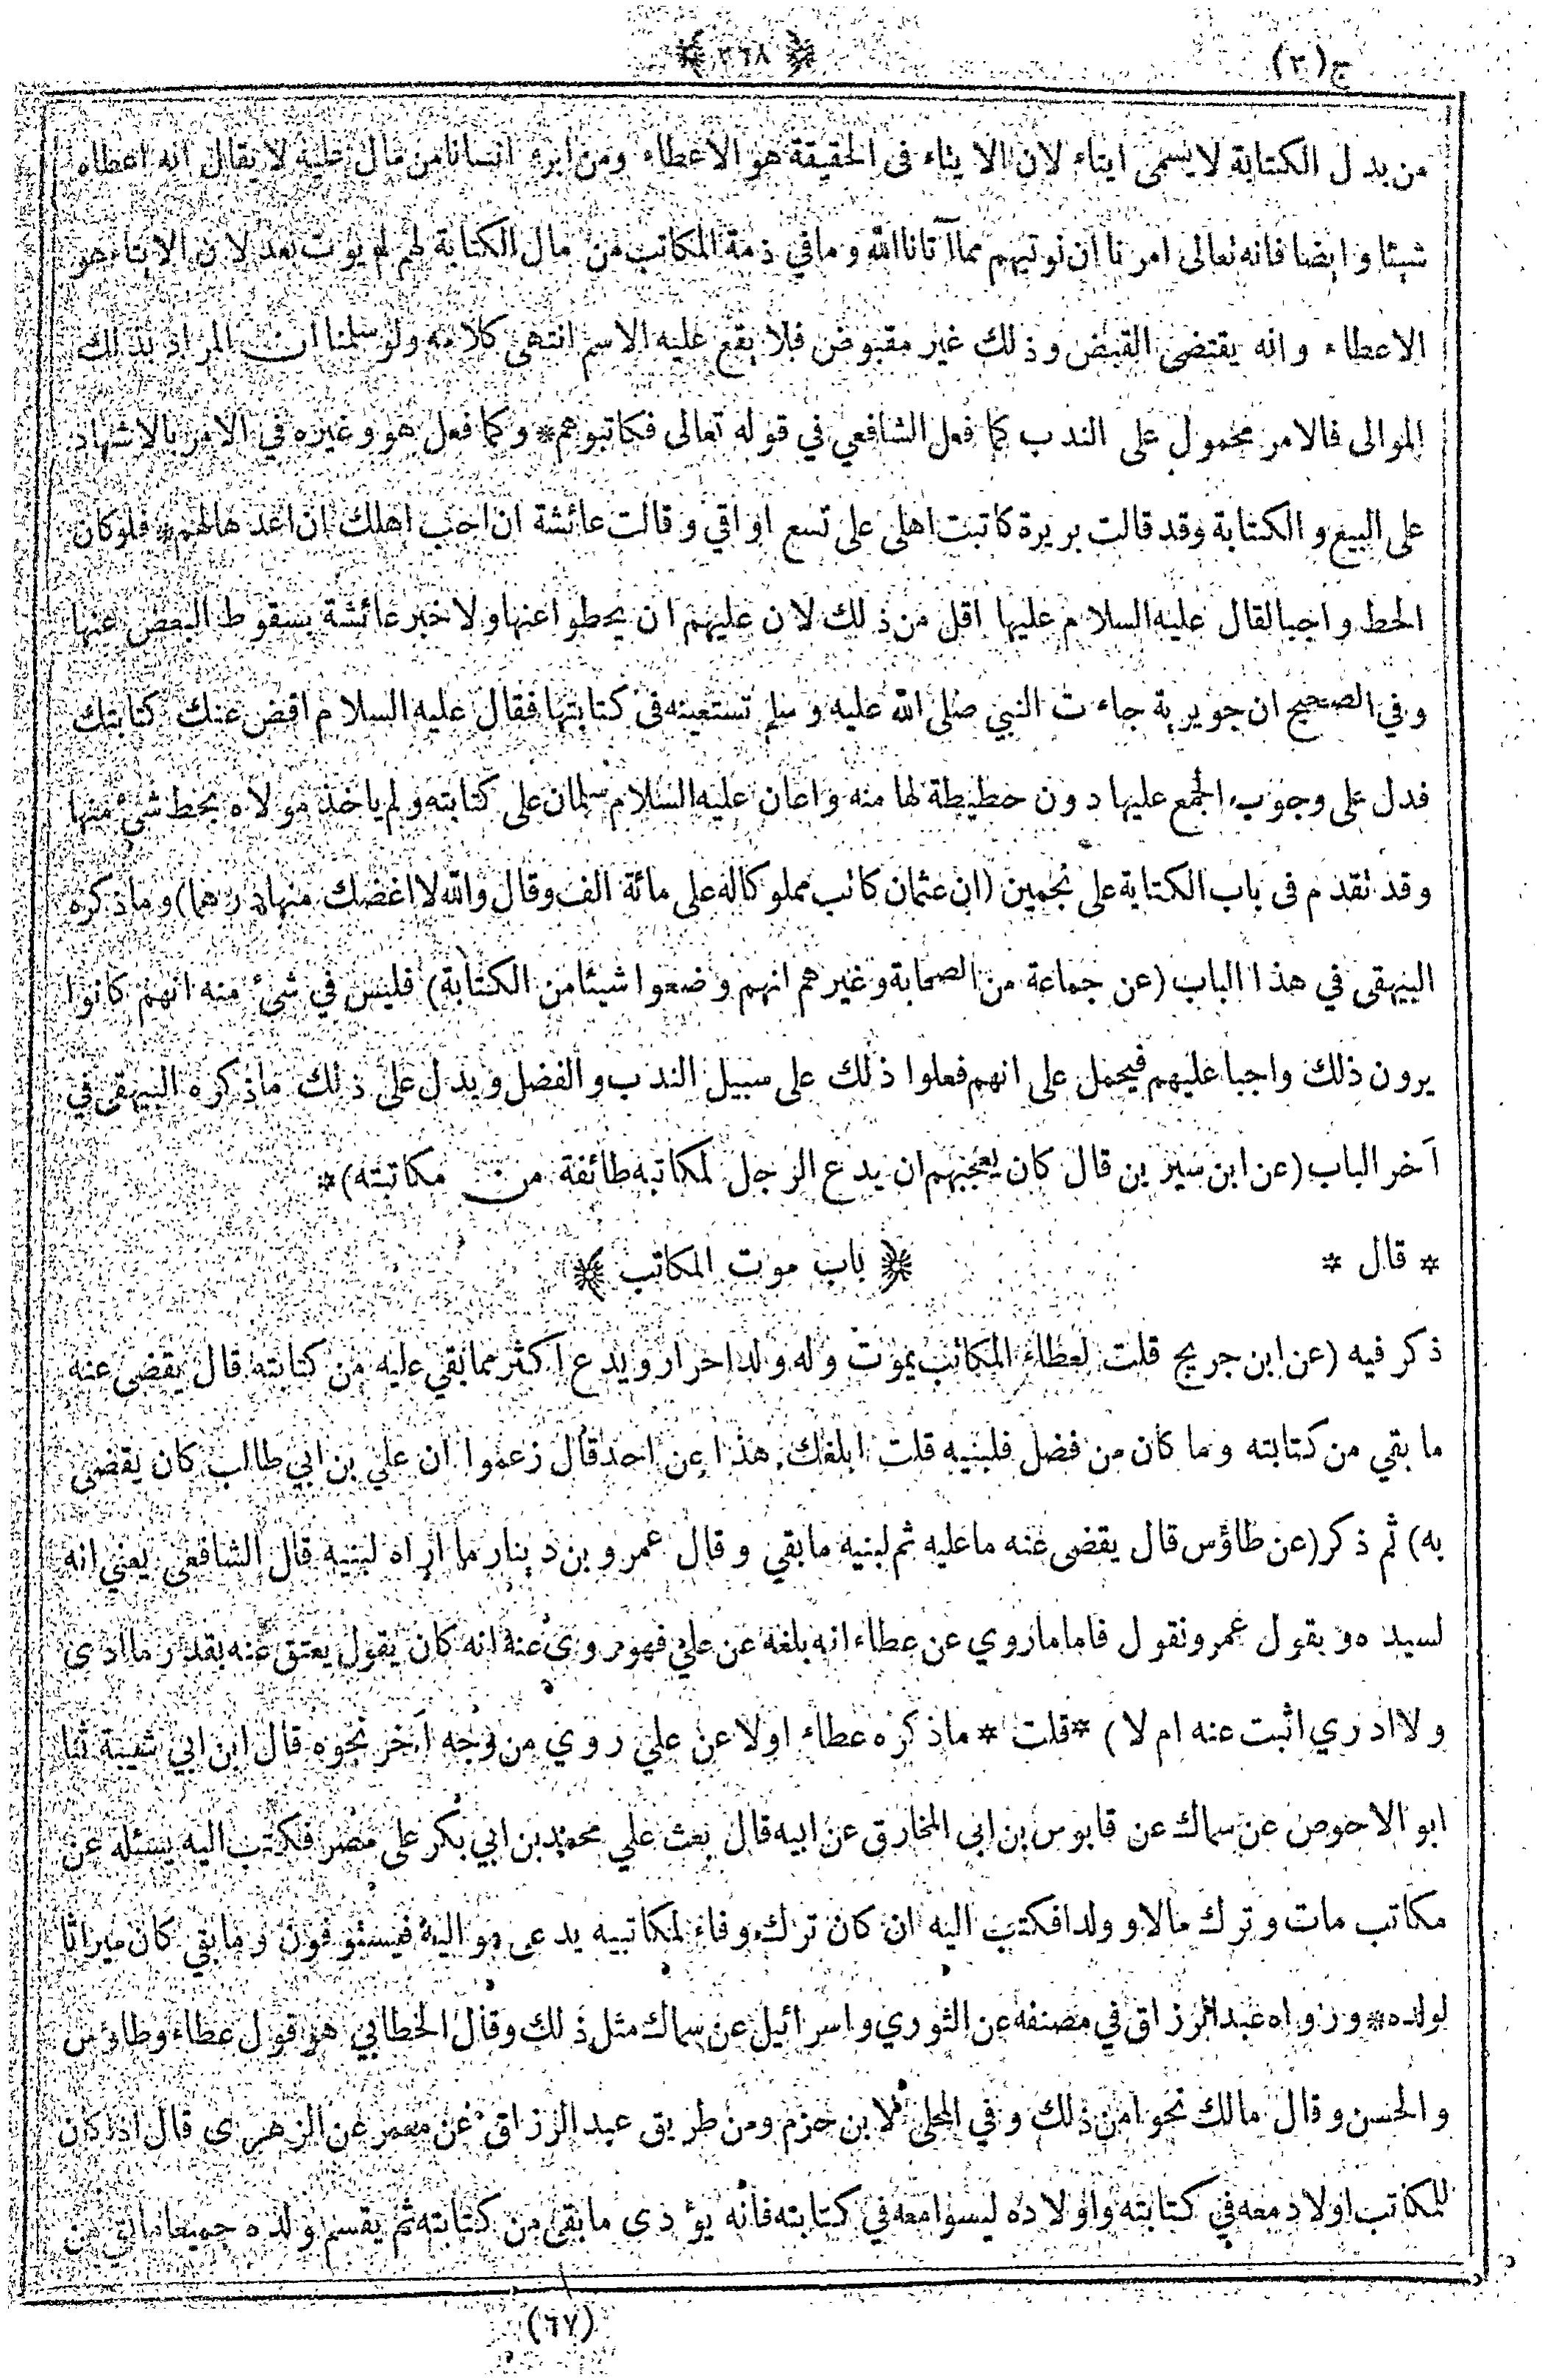 ج(٢)
﴿ ٢٦٨ ﴾
من بدل الكتابة لا يسمى ايتاء لان الايتاء فى الحقيقة هو الاعطاء ومن ابرء انسانا من مال عليه لا يقال انه اعطاه
شيئا وايضا فانه تعالى امرنا ان نوتيهم مما آتانا الله وما في ذمة المكاتب من مال الكتابة لهم لم يوت بعد لان الايتاء هو
الاعطاء وانه يقتضى القبض وذلك غير مقبوض فلا يقع عليه الاسم انتهى كلامه ولو سلمنا ان المراد بذلك
الموالى فالامر محمول على الندب كما فعل الشافعي في قوله تعالى فكاتبوهم * وكما فعل هو وغيره في الامر بالاشهاد
على البيع والكتابة وقد قالت بريرة كاتبت اهلى على تسع اواقي وقالت عائشة ان احب اهلك ان اعدها لهم * فلو كان
الحط واجبا لقال عليه السلام عليها اقل من ذلك لان عليهم ان يحطوا عنها ولا خبر عائشة بسقوط البعض عنها
وفي الصحيح ان جويرية جاءت النبي صلى الله عليه وسلم تستعينه فى كتابتها فقال عليه السلام اقض عنك كتابتك
فدل على وجوب الجمع عليها دون حطيطة لها منه واعان عليه السلام سلمان على كتابته ولم ياخذ مولاه بحط شئ منها
وقد تقدم فى باب الكتابة على نجمين (ان عثمان كاتب مملوكا له على مائة الف وقال والله لا اغضك منها درهما) وما ذكره
البيهقى في هذا الباب (عن جماعة من الصحابة وغيرهم انهم وضعوا شيئا من الكتابة) فليس في شئ منه انهم كانوا
يرون ذلك واجبا عليهم فيحمل على انهم فعلوا ذلك على سبيل الندب والفضل ويدل على ذلك ماذكره البيهقى في
آخر الباب (عن ابن سيرين قال كان يعجبهم ان يدع الرجل لمكاتبه طائفة من مكاتبته) *
* قال * ﴿ باب موت المكاتب ﴾
ذكر فيه (عن ابن جريج قلت لعطاء المكاتب يموت وله ولد احرار ويدع اكثر مما بقي عليه من كتابته قال يقضى عنه
ما بقي من كتابته وما كان من فضل فلبنيه قلت ابلغك هذا عن احد قال زعموا ان علي بن ابي طالب كان يقضى
به) ثم ذكر (عن طاؤس قال يقضى عنه ما عليه ثم لبنيه ما بقي وقال عمرو بن دينار ما اراه لبنيه قال الشافعى يعني انه
لسيده وبقول عمرو نقول فاما ما روي عن عطاء انه بلغه عن علي فهو روى عنه انه كان يقول يعتق عنه بقدر ما ادى
ولا ادري اثبت عنه ام لا) * قلت * ماذكره عطاء اولا عن علي روي من وجه آخر نحوه قال ابن ابي شيبة ثنا
ابو الاحوص عن سماك عن قابوس بن ابى المخارق عن ابيه قال بعث علي محمد بن ابي بكر على مصر فكتب اليه يسئله عن
مكاتب مات وترك مالا وولدا فكتب اليه ان كان ترك وفاء لمكاتبيه يدعى مواليه فيستوفون وما بقي كان ميراثا
لولده * ورواه عبد الرزاق في مصنفه عن الثوري واسرائيل عن سماك مثل ذلك وقال الخطابي هو قول عطاء وطاؤس
والحسن وقال مالك نحوا من ذلك وفي المحلى لابن حزم ومن طريق عبد الرزاق عن معمر عن الزهرى قال اذا كان
للمكاتب اولاد معه في كتابته واولاده ليسوا معه في كتابته فانه يؤدى ما بقي من كتابته ثم يقسم ولده جميعا ما بقي من
(٦٧)